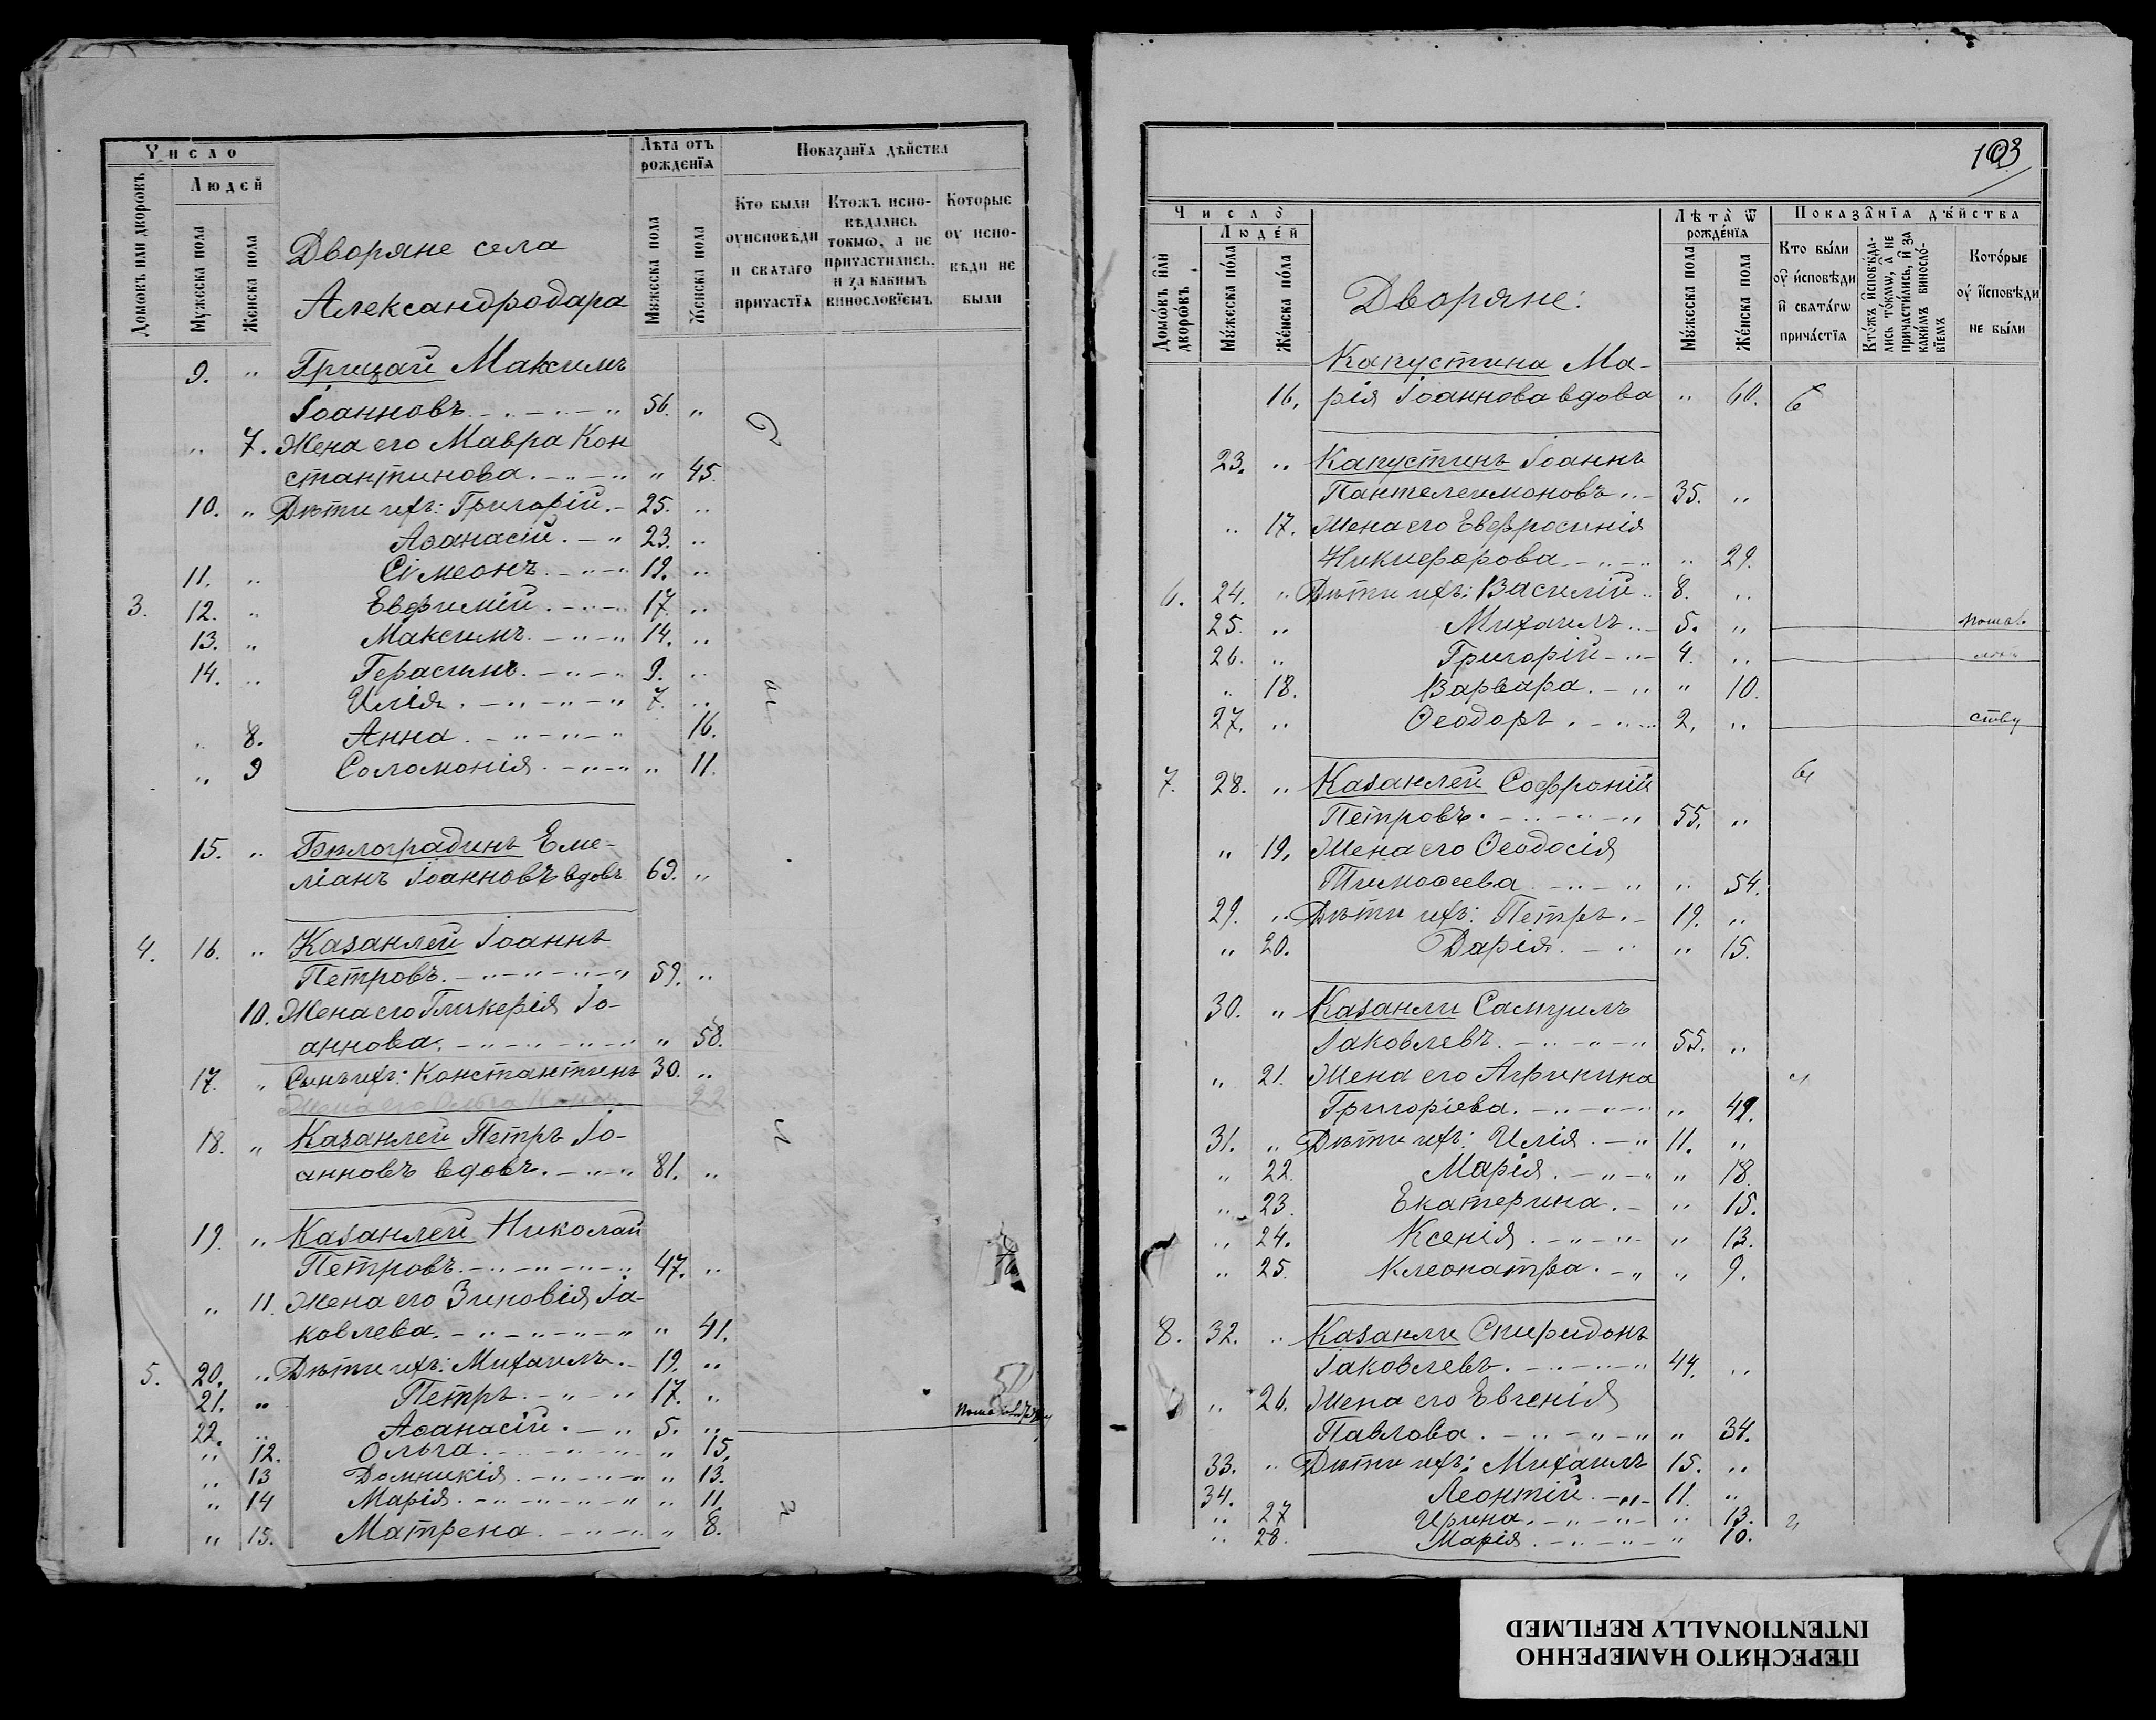 Число
Людей
Домовъ или дворовъ
Мужеска пола
Женска пола
Дворяне села
Александродара
Лѣта отъ рожденїя
Мужеска пола
Женска пола
Показанїя дѣйства
Кто были оу исповѣди и святаго причастїя
Ктожъ исповѣдались токмω, а не причастились, и за какимъ винословїемъ
Которые оу исповѣди не были
9. " Грицай Максимъ
Іоанновъ 56. "
" 7. Жена его Мавра Кон
стантинова. " 45.
10. " Дѣти ихъ: Григорій. 25. "
Аѳанасій. 23. "
11. " Сѵмеонъ. 19. "
3. 12. " Евфимій. 17. "
13. " Максимъ. 14. "
14. " Герасимъ. 9. "
Илія. 7. "
" 8. Анна. 16.
" 9 Соломонія. " 11.
15. " Бѣлоградинъ Еме-
ліанъ Іоанновъ вдовъ 69. "
4. 16. " Казанлей Іоаннъ
Петровъ. 59. "
10. Жена его Гликерія Іо-
аннова. " 58.
17. " Сынъ ихъ: Константинъ 30. "
Жена его Ольга 22
18. " Казанлей Петръ Іо-
анновъ вдовъ. 81. "
19. " Казанлей Николай
Петровъ. 47. "
" 11. Жена его Зиновія Іа-
ковлева. " 41.
5. 20. " Дѣти ихъ: Михаилъ. 19. "
21. " Петръ. 17. "
22. " Аѳанасій. 5. "
" 12. Ольга. " 15.
" 13 Домникія. " 13.
" 14 Марія. " 11.
" 15. Матрена. " 8.
103
Число
Людей
Домѡвъ или дворѡвъ
Мужеска пола
Женска пола
Дворяне:
Лѣта ѿ рожденїя
Мужеска пола
Женска пола
Показанїя дѣйства
Кто были оу исповѣди и святагω причастїя
Ктожъ исповѣдались токмω, а не причастились, и за какимъ винословїемъ
Которые оу исповѣди не были
Капустина Ма-
16. рія Іоаннова вдова " 60.
23. " Капустинъ Іоаннъ
Пантелеимоновъ 35. "
" 17. Жена его Евфросинія
Никифорова " 29.
6. 24. " Дѣти ихъ: Василій 8. "
25. " Михаилъ 5. "
26. " Григорій 4. "
" 18. Варвара. " 10.
27. " Ѳеодоръ. 2. "
7. 28. " Казанлей Софроній
Петровъ. 55. "
" 19. Жена его Ѳеодосія
Тимоѳеева " 54.
29. " Дѣти ихъ: Петръ. 19. "
" 20. Дарія. " 15.
30. " Казанли Самуилъ
Іаковлевъ. 55. "
" 21. Жена его Агрипина
Григоріева. " 49.
31. " Дѣти ихъ: Илія. 11. "
" 22. Марія. " 18.
" 23. Екатерина. " 15.
" 24. Ксенія. " 13.
" 25. Клеопатра. " 9.
8. 32. " Казанли Спиридонъ
Іаковлевъ. 44. "
" 26. Жена его Евгенія
Павлова. " 34.
33. " Дѣти ихъ: Михаилъ 15. "
34. Леонтій. 11. "
" 27 Ирина. " 13.
" 28. Марія. " 10.
ПЕРЕСНЯТО НАМЕРЕННО
INTENTIONALLY REFILMED